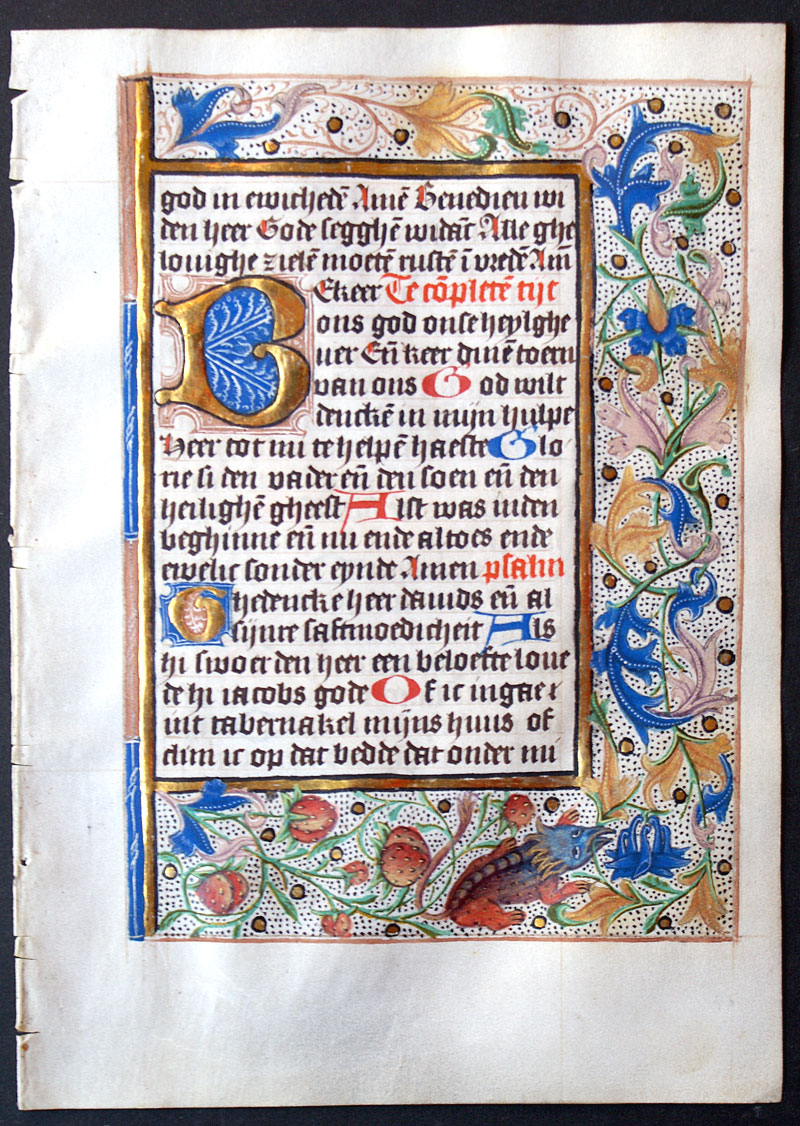 god in ewichedē Amē Benedien wi
den heer Gode segghē wi dāc Alle ghe
lovighe zielē moetē rustē ī vredē Amē
BEkeer Te cōpletē tijt
ons god onse heylghe
ver Eñ keer dinē toern
van ons God wilt
denckē in mijn hulpe
Heer tot mi te helpē haeste Glo
rie si den vader eñ den soen eñ den
heilighē gheest Alst was inden
beghinne eñ nu ende altoes ende
ewelic sonder eynde Amen psalm
Ghedencke heer davids eñ al
sijnre saftmoedicheit Als
hi swoer den heer een beloefte love
de hi iacobs gode Of ic ingae ĩ
mit tabernakel mijns huus of
clim ic op dat bedde dat onder mi